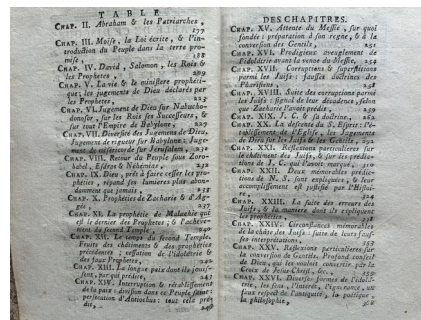 TABLE
CHAP. II. Abraham & les Patriarches,
177
CHAP. III. Moïse, la Loi écrite, & l'in-
troduction du Peuple dans la terre pro-
mise,
CHAP. IV. David, Salomon, les Rois &
les Prophetes,
CHAP. V. La vie & le ministere propheti-
que; les jugemens de Dieu déclarés par
les Prophetes,
CHAP. VI. Jugement de Dieu sur Nabucho-
donosor, sur les Rois ses Successeurs, &
sur tout l'Empire de Babylone,
CHAP. VII. Diversité des Jugemens de Dieu,
Jugement de rigueur sur Babylone; Juge-
ment de miséricorde sur Jérusalem,
CHAP. VIII. Retour du Peuple sous Zoro-
babel, Esdras & Néhémie,
CHAP. IX. Dieu, prêt à faire cesser les pro-
phéties, répand ses lumieres plus abon-
damment que jamais,
CHAP. X. Prophéties de Zacharie & d'Ag-
gée,
237
CHAP. XI. La prophétie de Malachie qui
est le dernier des Prophetes; & l'acheve-
ment du second Temple,
CHAP. XII. Le temps du second Temple.
Fruits des châtimens & des prophéties
précédentes; cessation de l'idolâtrie &
des faux Prophetes,
CHAP. XIII. La longue paix dont ils jouis-
sent, par qui prédite,
CHAP. XIV. Interruption & rétablissement
de la paix: division dans ce Peuple saint:
persécution d'Antiochus: tout cela pré-
dit,
DES CHAPITRES.
CHAP. XV. Attente du Messie, sur quoi
fondée: préparation à son regne, & à la
conversion des Gentils,
251
CHAP. XVI. Prodigieux aveuglement de
l'idolâtrie avant la venue du Messie,
CHAP. XVII. Corruptions & superstitions
parmi les Juifs: fausses doctrines des
Pharisiens,
CHAP. XVIII. Suite des corruptions parmi
les Juifs: signal de leur décadence, selon
que Zacharie l'avoit prédit,
CHAP. XIX. J. C. & sa doctrine,
CHAP. XX. La descente du S. Esprit: l'é-
tablissement de l'Eglise, les Jugements
de Dieu sur les Juifs & les Gentils,
CHAP. XXI. Réflexions particulieres sur
le châtiment des Juifs, & sur les prédic-
tions de J. C. qui l'avoit marqué,
CHAP. XXII. Deux mémorables prédic-
tions de N. S. sont expliquées, & leur
accomplissement est justifié par l'Histoi-
re,
CHAP. XXIII. La suite des erreurs des
Juifs, & la maniere dont ils expliquent
les prophéties,
CHAP. XXIV. Circonstances mémorables
de la chûte des Juifs: suite de leurs fauf-
ses interprétations,
CHAP. XXV. Réflexions particulieres sur
la conversion des Gentils. Profond conseil
de Dieu, qui les vouloit convertir par la
Croix de Jesus-Christ, &c.,
CHAP. XXVI. Diverses formes de l'idolâ-
trie, les sens, l'intérêt, l'ignorance, un
faux respect de l'antiquité, la politique,
la philosophie,